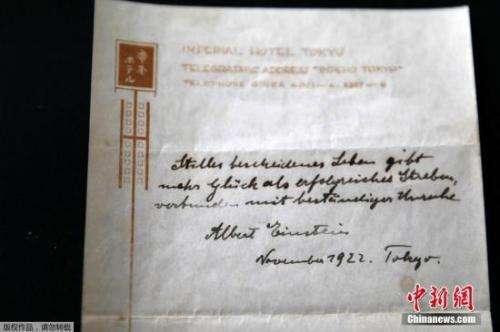 IMPERIAL HOTEL TOKYO
TELEGRAPHIC ADDRESS TOKYO"
TELEPHONE
ホテル
Stilles bescheidenes Leben gibt
mehr Glück als erfolgreiches Streben,
verbunden mit beständiger Unruhe
Albert Einstein
November 1922. Tokyo.
中新网
Chinanews.com